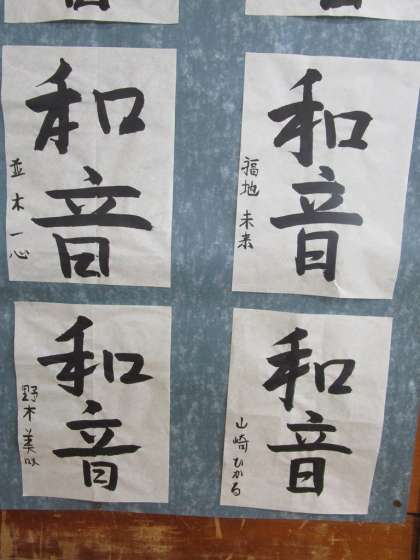 和音
並木一心
和音
福地未来
和音
野木美咲
和音
山崎ひかる